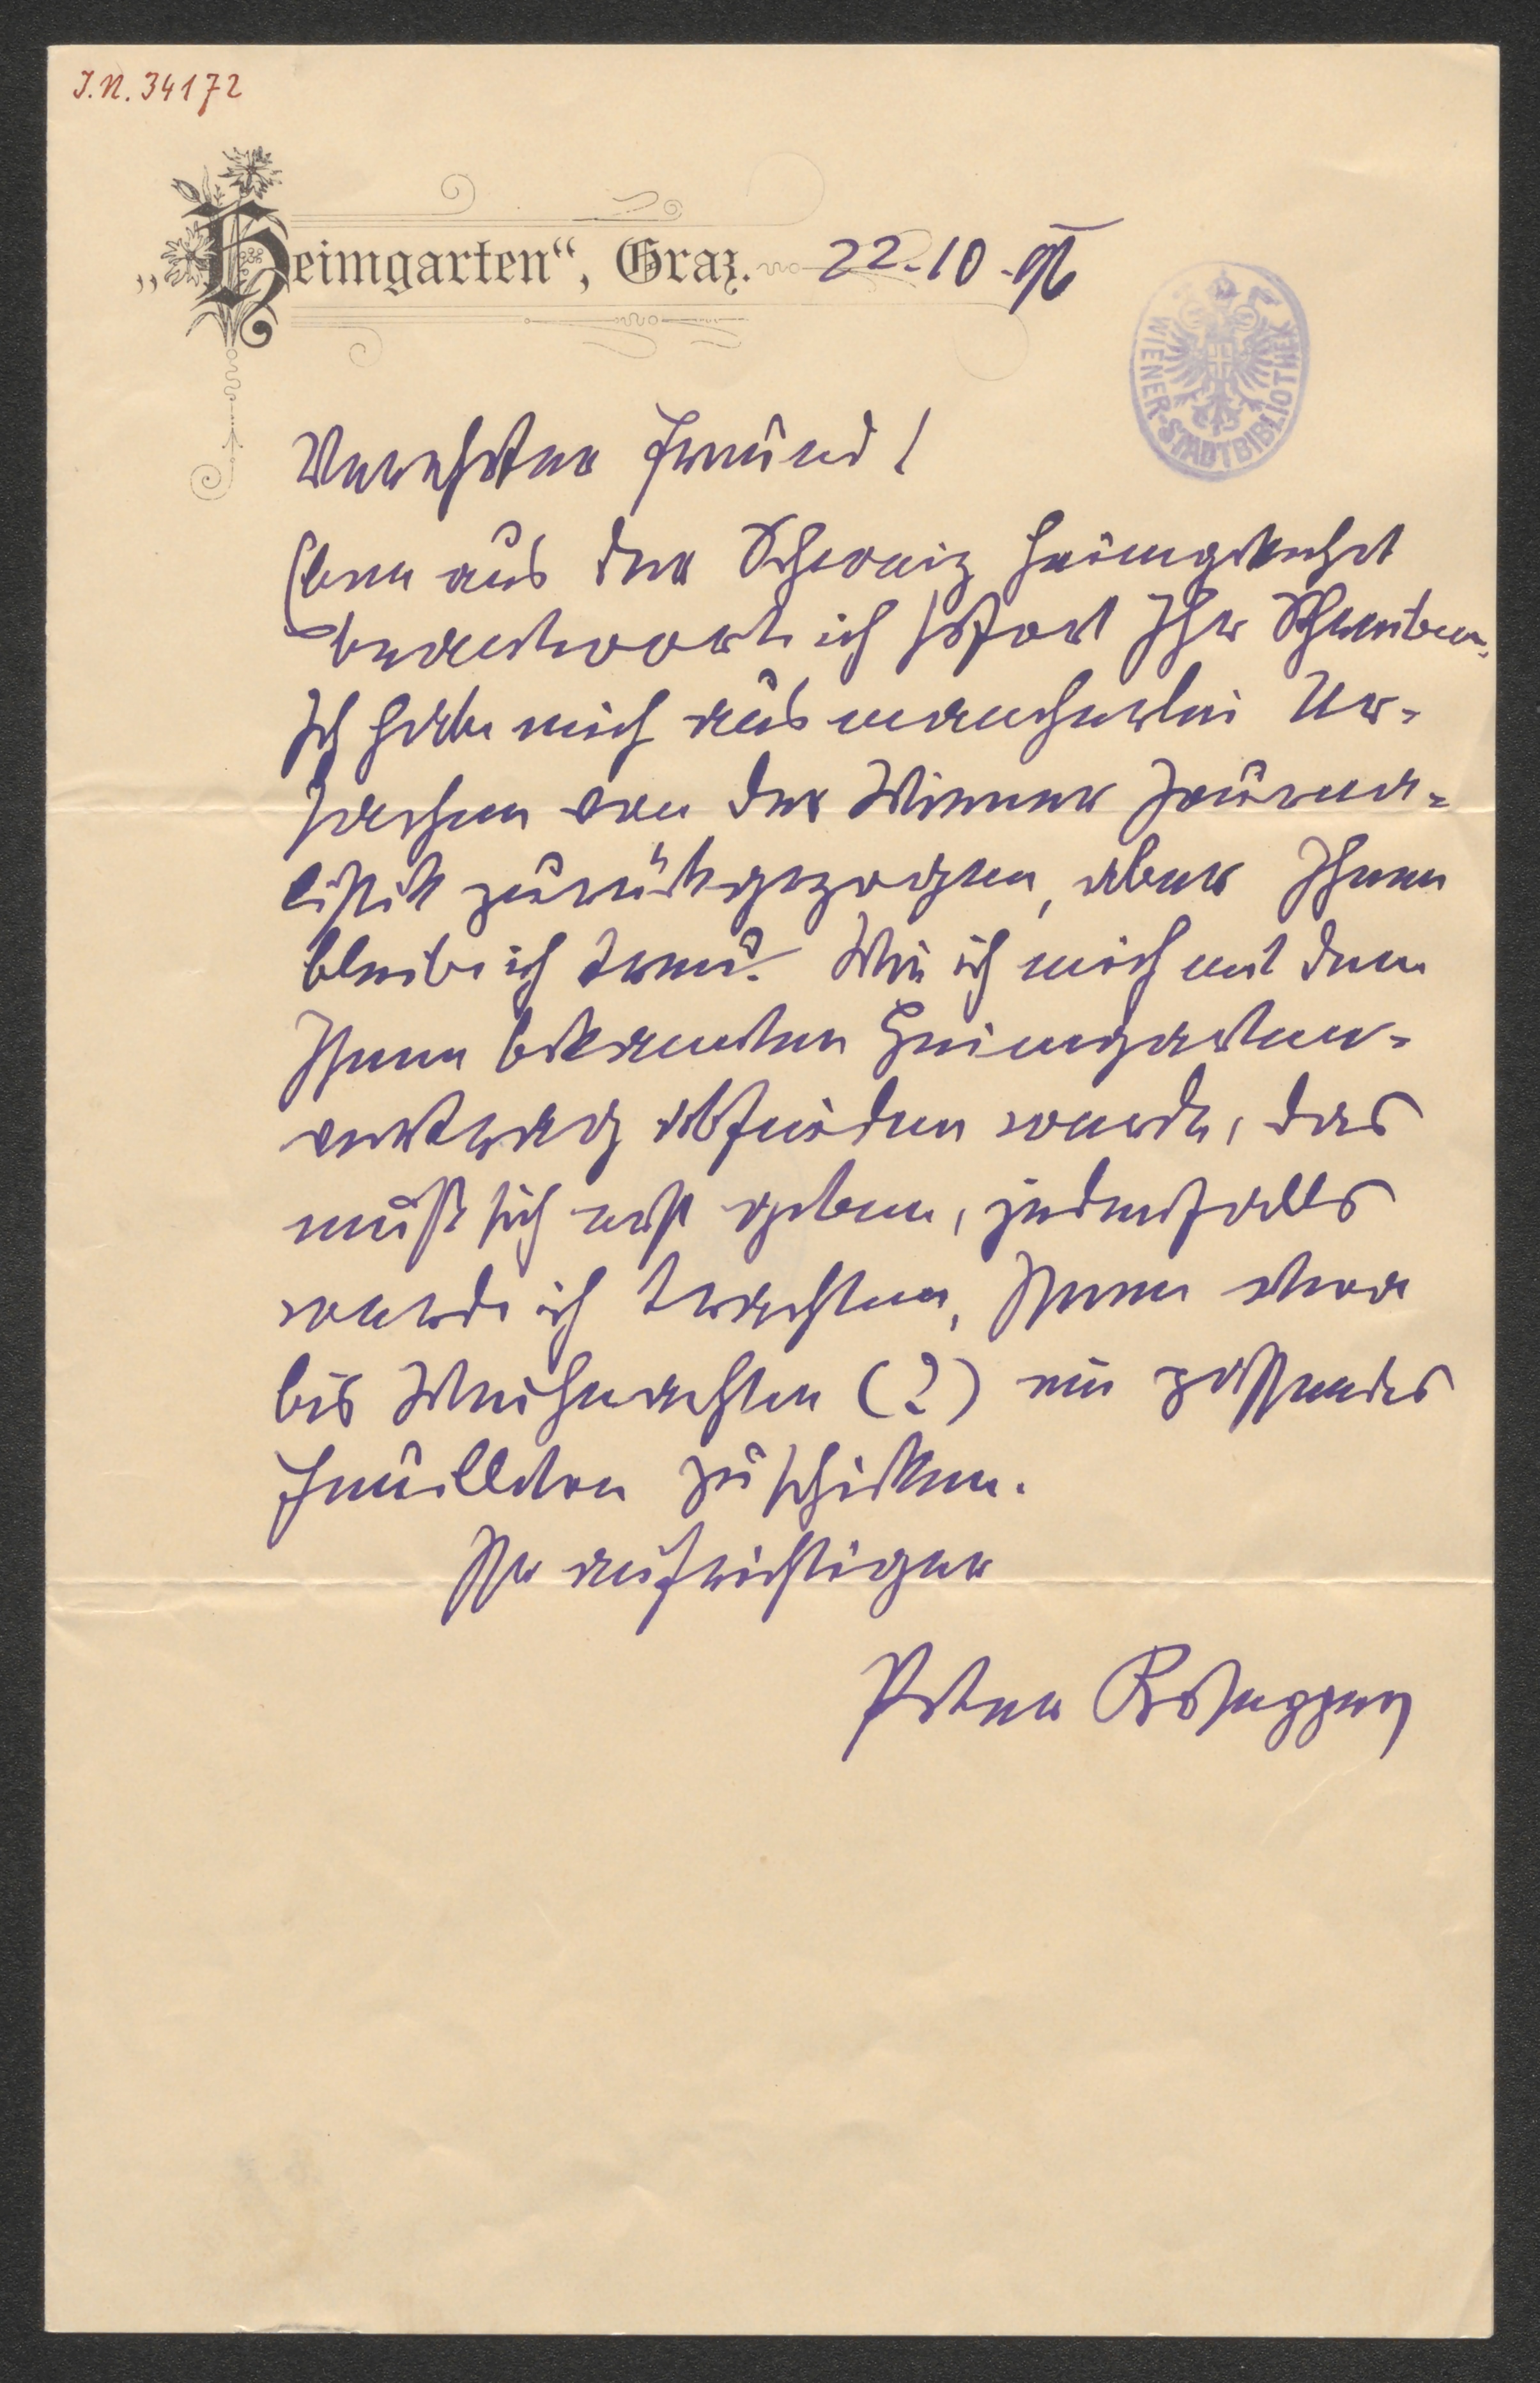 I.N. 34172
„Heimgarten“, Graz. 22.10.96
WIENER-STADTBIBLIOTHEK
Verehrter Freund!
Eben aus der Schweiz heimgekehrt
beantworte ich sofort Ihr Schreiben.
Ich habe mich aus mancherlei Ur-
sachen von der Wiener Journa-
listik zurückgezogen, aber Ihnen
bleibe ich treu. Wie ich mich mit dem
Ihnen bekannten Heimgarten-
vertrag abfinden werde, das
muß sich erst geben, jedenfalls
werde ich trachten, Ihnen etwa
bis Weihnachten (?) ein passendes
Feuilleton zu schicken.
Ihr aufrichtiger
Peter Rosegger